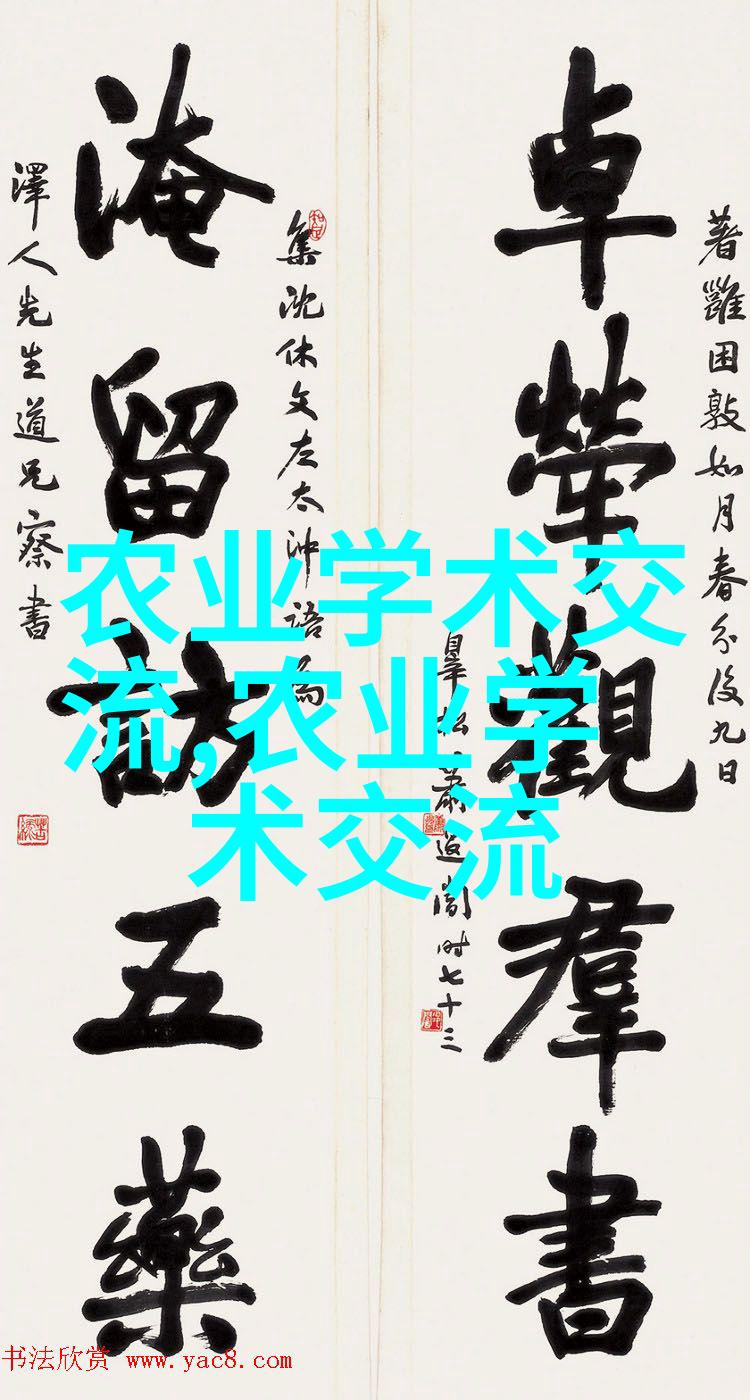 著雝困敦如月春分後九日
卓犖觀羣書
集沈休文左太沖語為
淹留訪五藥
澤人先生道兄察書
皋松蕭退闇时七十三
农业学术交
流,农业学
术交流
书法欣赏 www.yac8.com